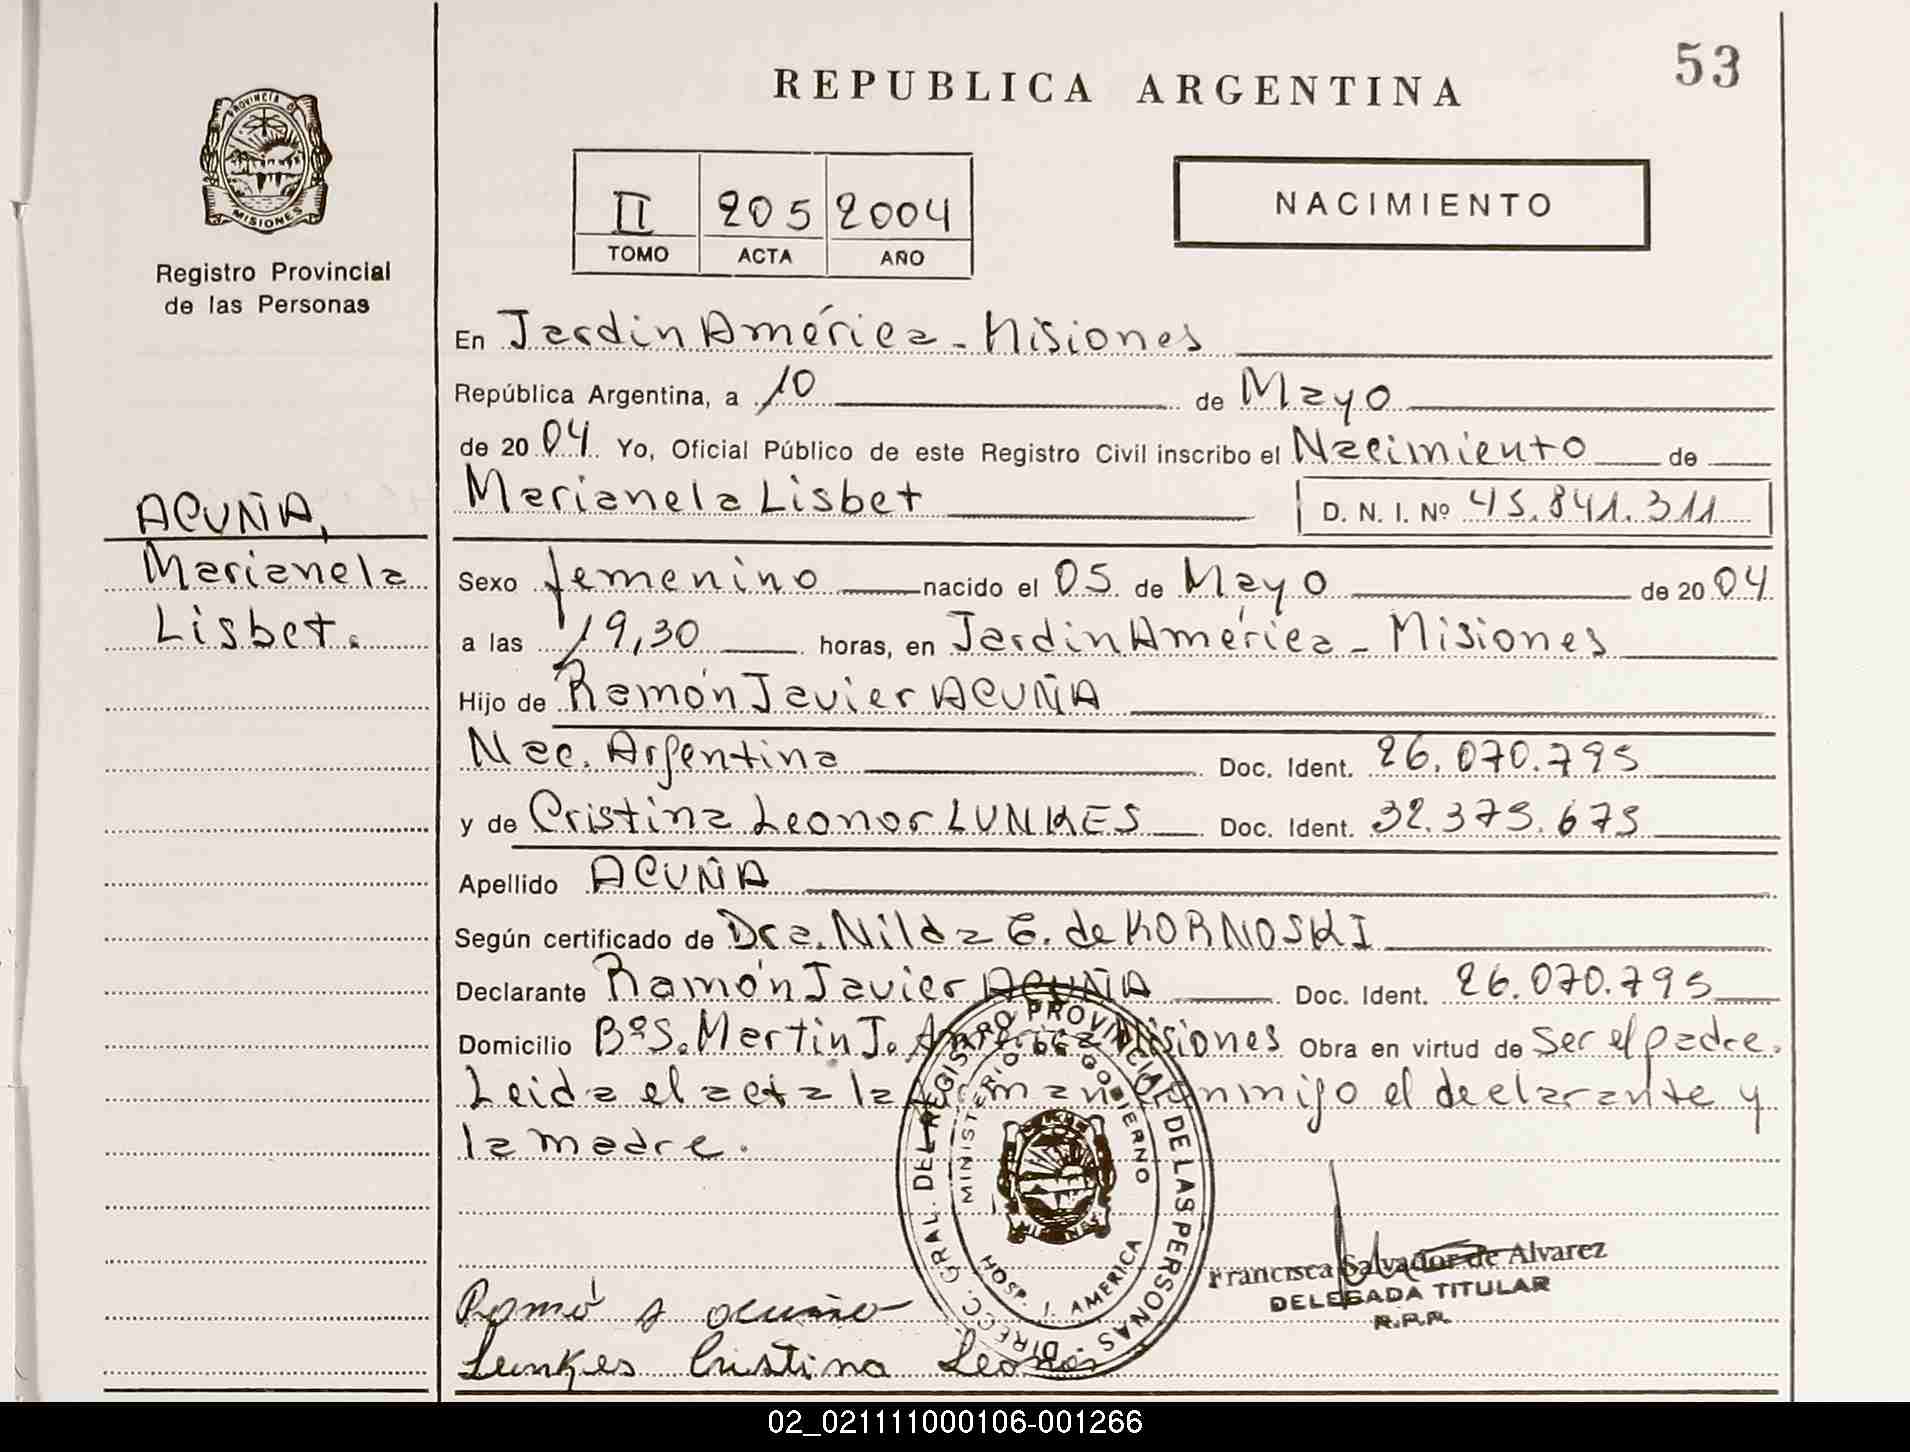 53
REPUBLICA ARGENTINA
PROVINCIA D
MISIONES
Registro Provincial
de las Personas
II 205 2004
TOMO ACTA AÑO
NACIMIENTO
En Jardin América - Misiones
República Argentina, a 10 de Mayo
de 2004 Yo, Oficial Público de este Registro Civil inscribo el Nacimiento de
Marianela Lisbet D. N. I. Nº 45.841.311
ACUÑA,
Marianela
Lisbet.
Sexo femenino nacido el 05 de Mayo de 2004
a las 19,30 horas, en Jardin América - Misiones
Hijo de Ramón Javier ACUÑA
Nac. Argentina Doc. Ident. 26.070.795
y de Cristina Leonor LUNKES Doc. Ident. 32.375.675
Apellido ACUÑA
Según certificado de Dra. Nilda G. de KORNOSKI
Declarante Ramón Javier ACUÑA Doc. Ident. 26.070.795
Domicilio BºS. Martin J. América Misiones Obra en virtud de ser el padre.
Leida el acta la firman conmigo el declarante y
la madre.
DIRECC. GRAL. DEL REGISTRO PROVINCIAL DE LAS PERSONAS
MINISTERIO DE GOBIERNO
HOSP. J. AMERICA
Francisca Salvador de Alvarez
DELEGADA TITULAR
R.P.P.
Ramó J acuña
Lunkes Cristina Leonor
02_021111000106-001266